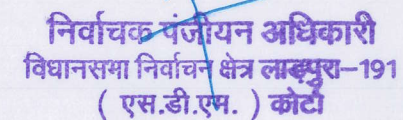 निर्वाचक पंजीयन अधिकारी
विधानसभा निर्वाचन क्षेत्र लाडपुरा-191
( एस.डी.एम. ) कोटा